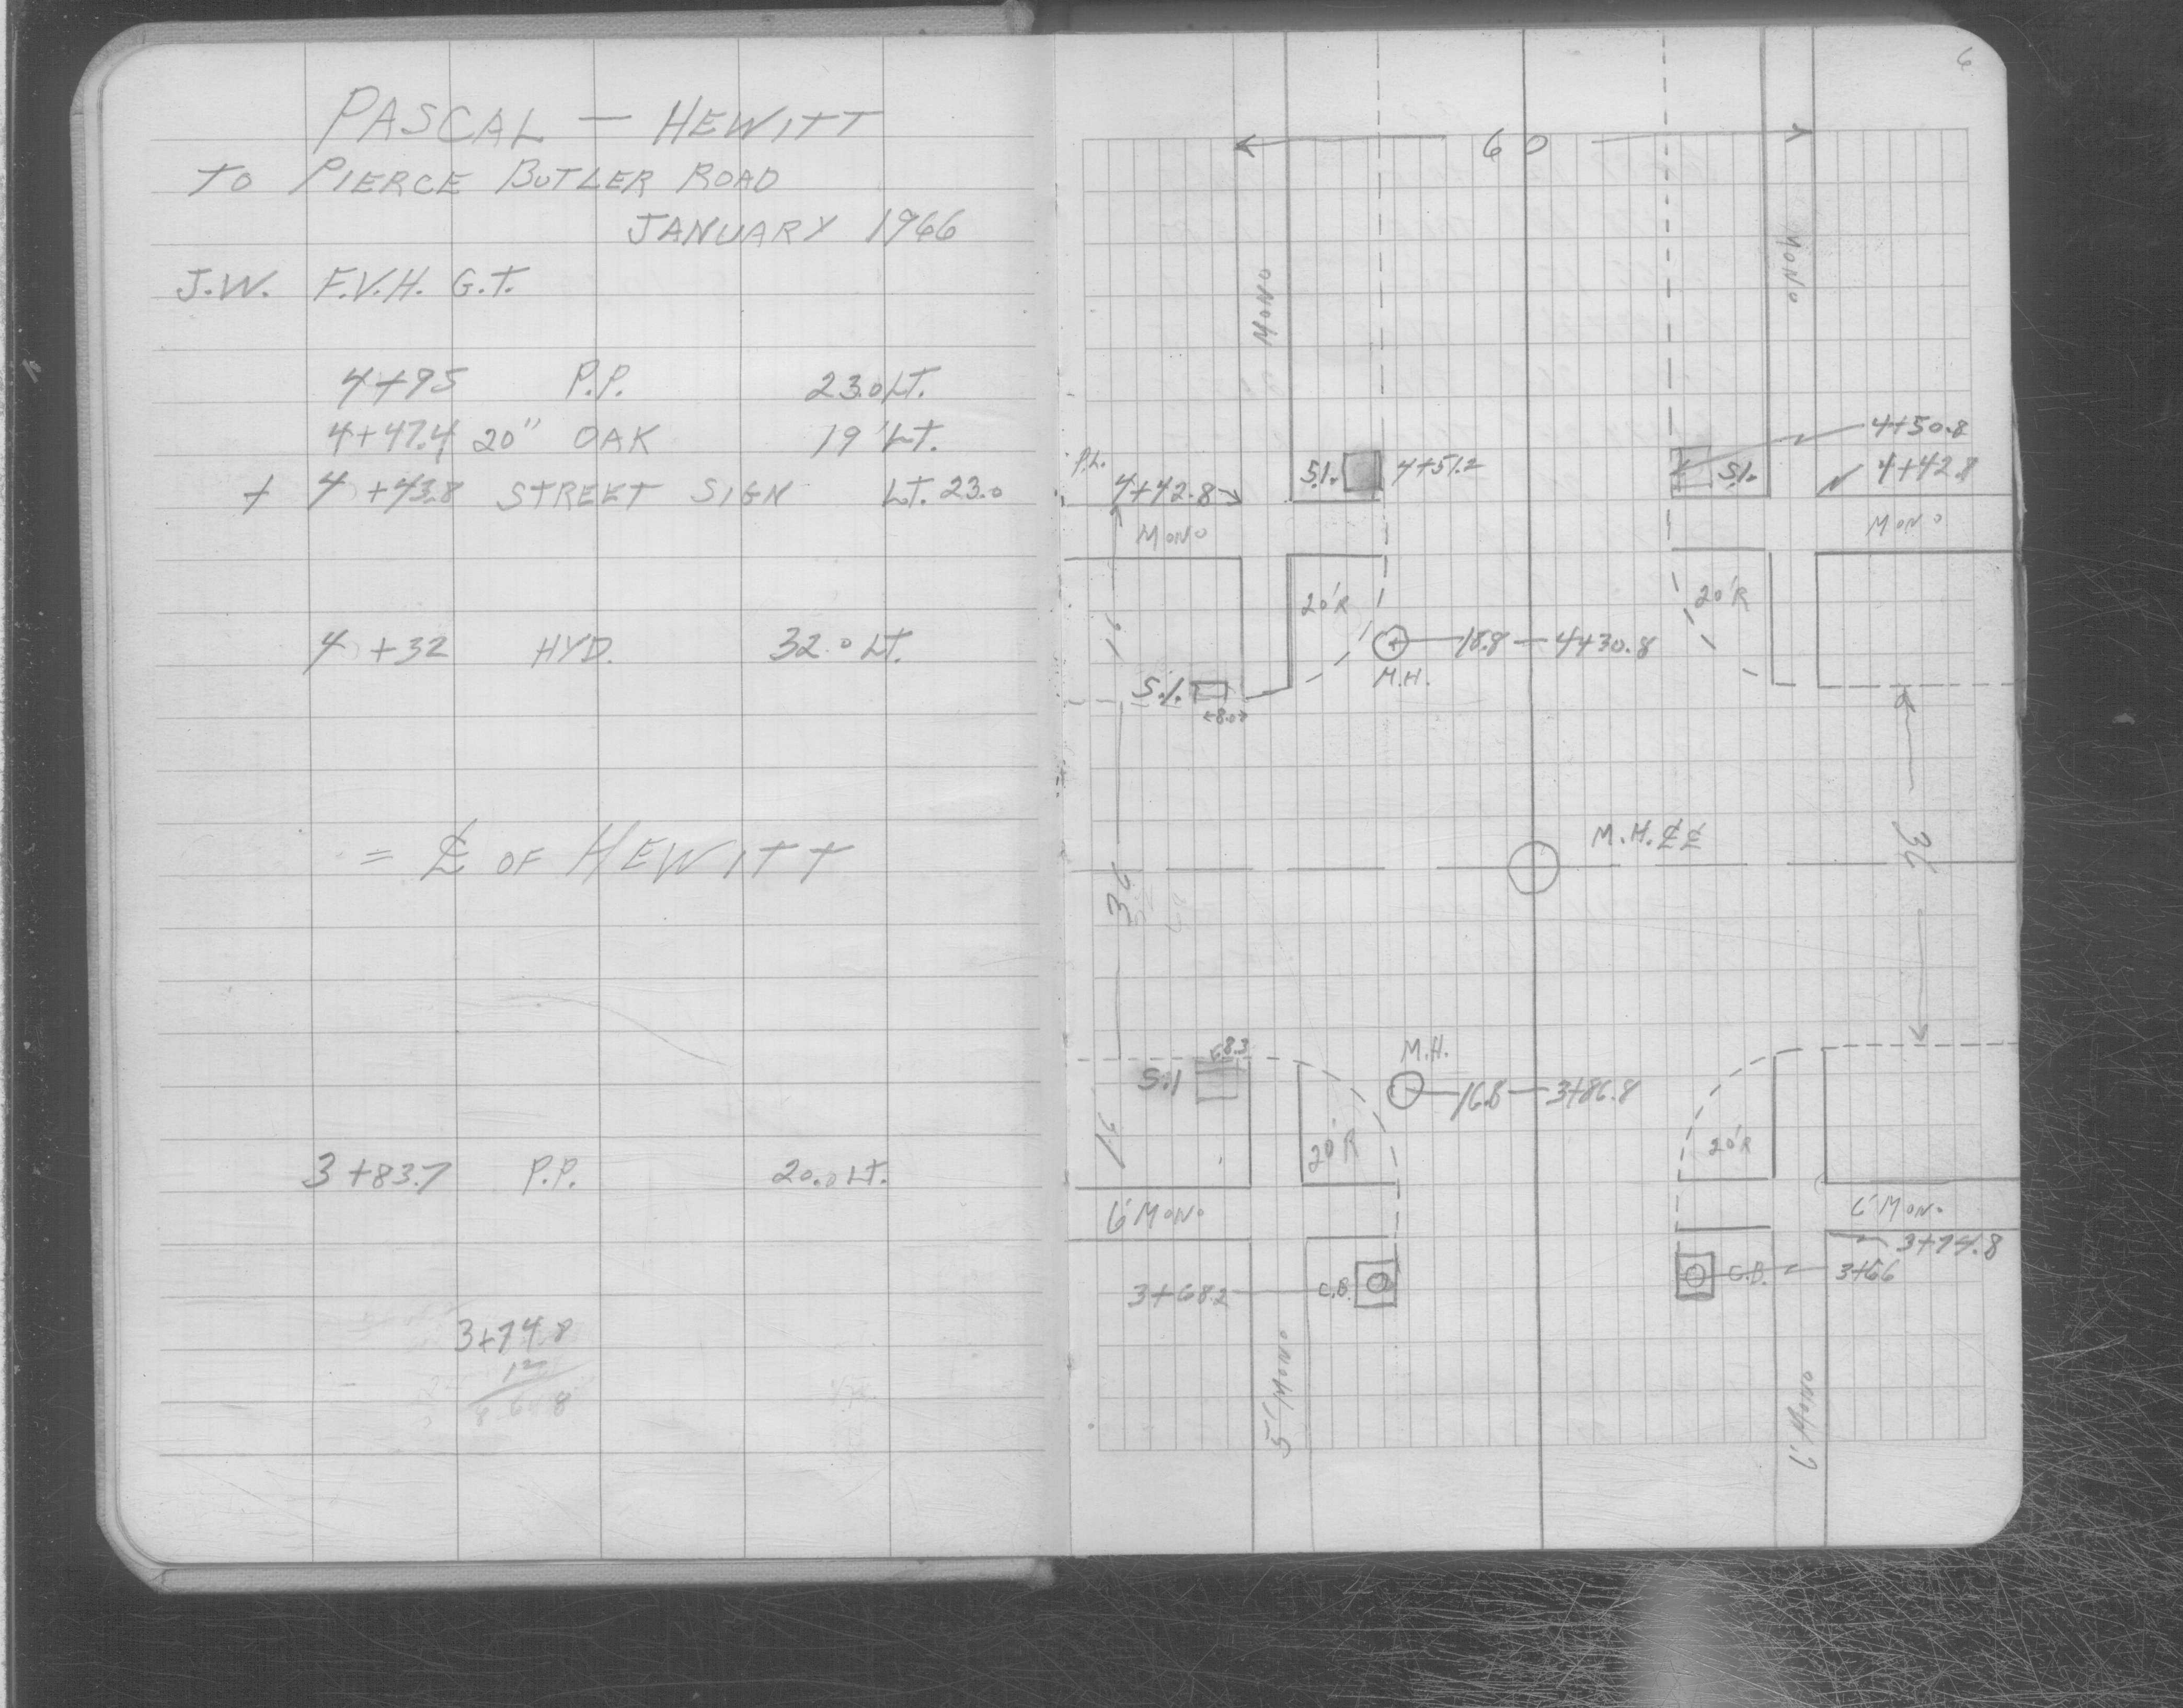 PASCAL — HEWITT
TO PIERCE BUTLER ROAD
JANUARY 1966
J.W. F.V.H. G.T.
4+95 P.P. 23.0 LT.
4+47.4 20" OAK 19' LT.
+ 4+43.8 STREET SIGN LT. 23.0
4+32 HYD. 32.0 LT.
= ℄ OF HEWITT
3+83.7 P.P. 20.0 LT.
3+74.8
12
6
60
MONO
MONO
4+50.8
P.L.
4+42.8
S.I.
4+51.2
S.I.
4+42.8
MONO
MONO
20'R
20'R
16
16.8 — 4+30.8
M.H.
S.I.
8.0
M.H. ℄ ℄
36
36
8.3
M.H.
S.I
16.8 — 3+86.8
16
20'R
20'R
6' MONO
6' MONO
3+74.8
3+68.2
C.B.
C.B.
3+66
5' MONO
6' MONO